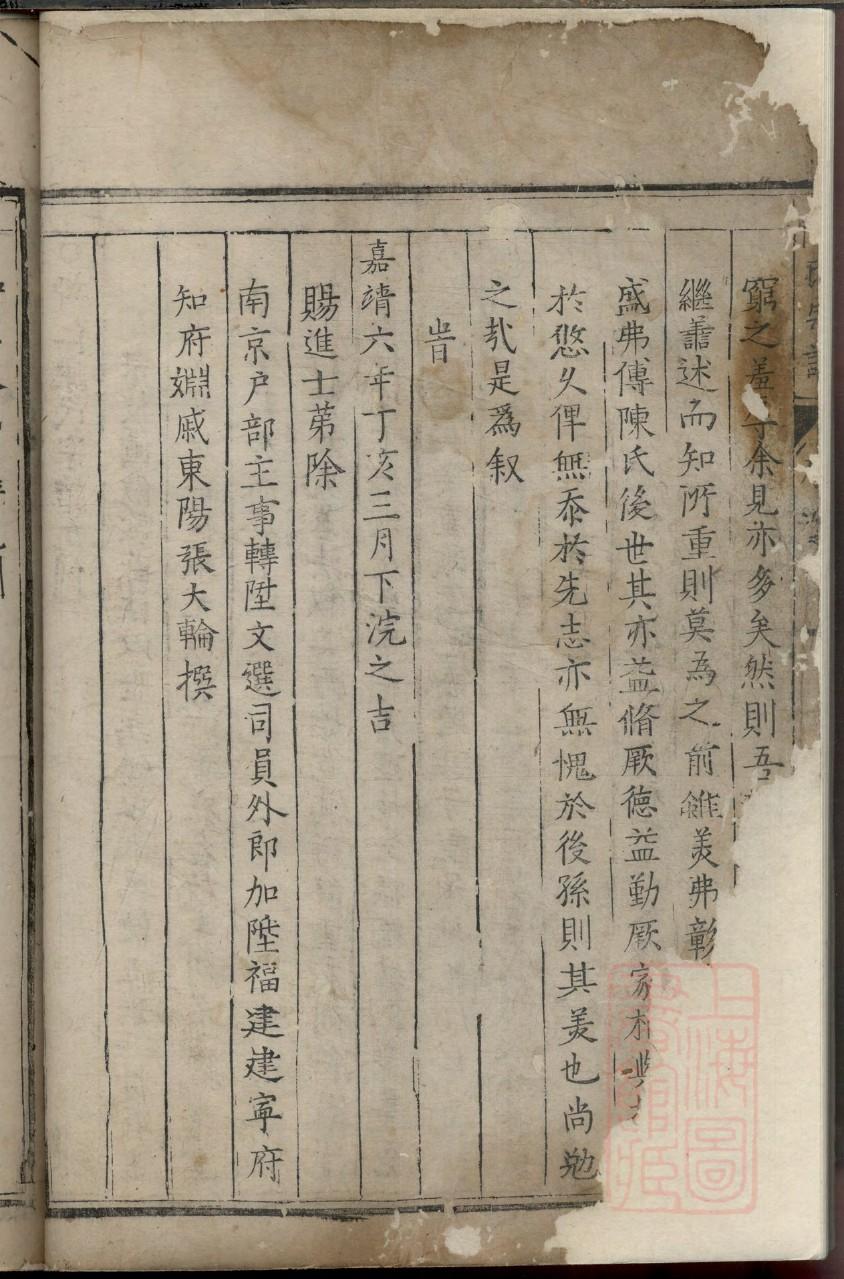 窮之羞乎余見亦多矣然則吾
繼善述而知所重則莫為之前雖美弗彰
盛弗傳陳氏後世其亦益脩厥德益勤厥家相與
於悠久俾無忝於先志亦無愧於後孫則其美也尚勉
之哉是為叙
旹
嘉靖六年丁亥三月下浣之吉
賜進士苐除
南京户部主事轉陞文選司員外郎加陞福建建寧府
知府婣戚東陽張大輪撰
上海圖
書館藏